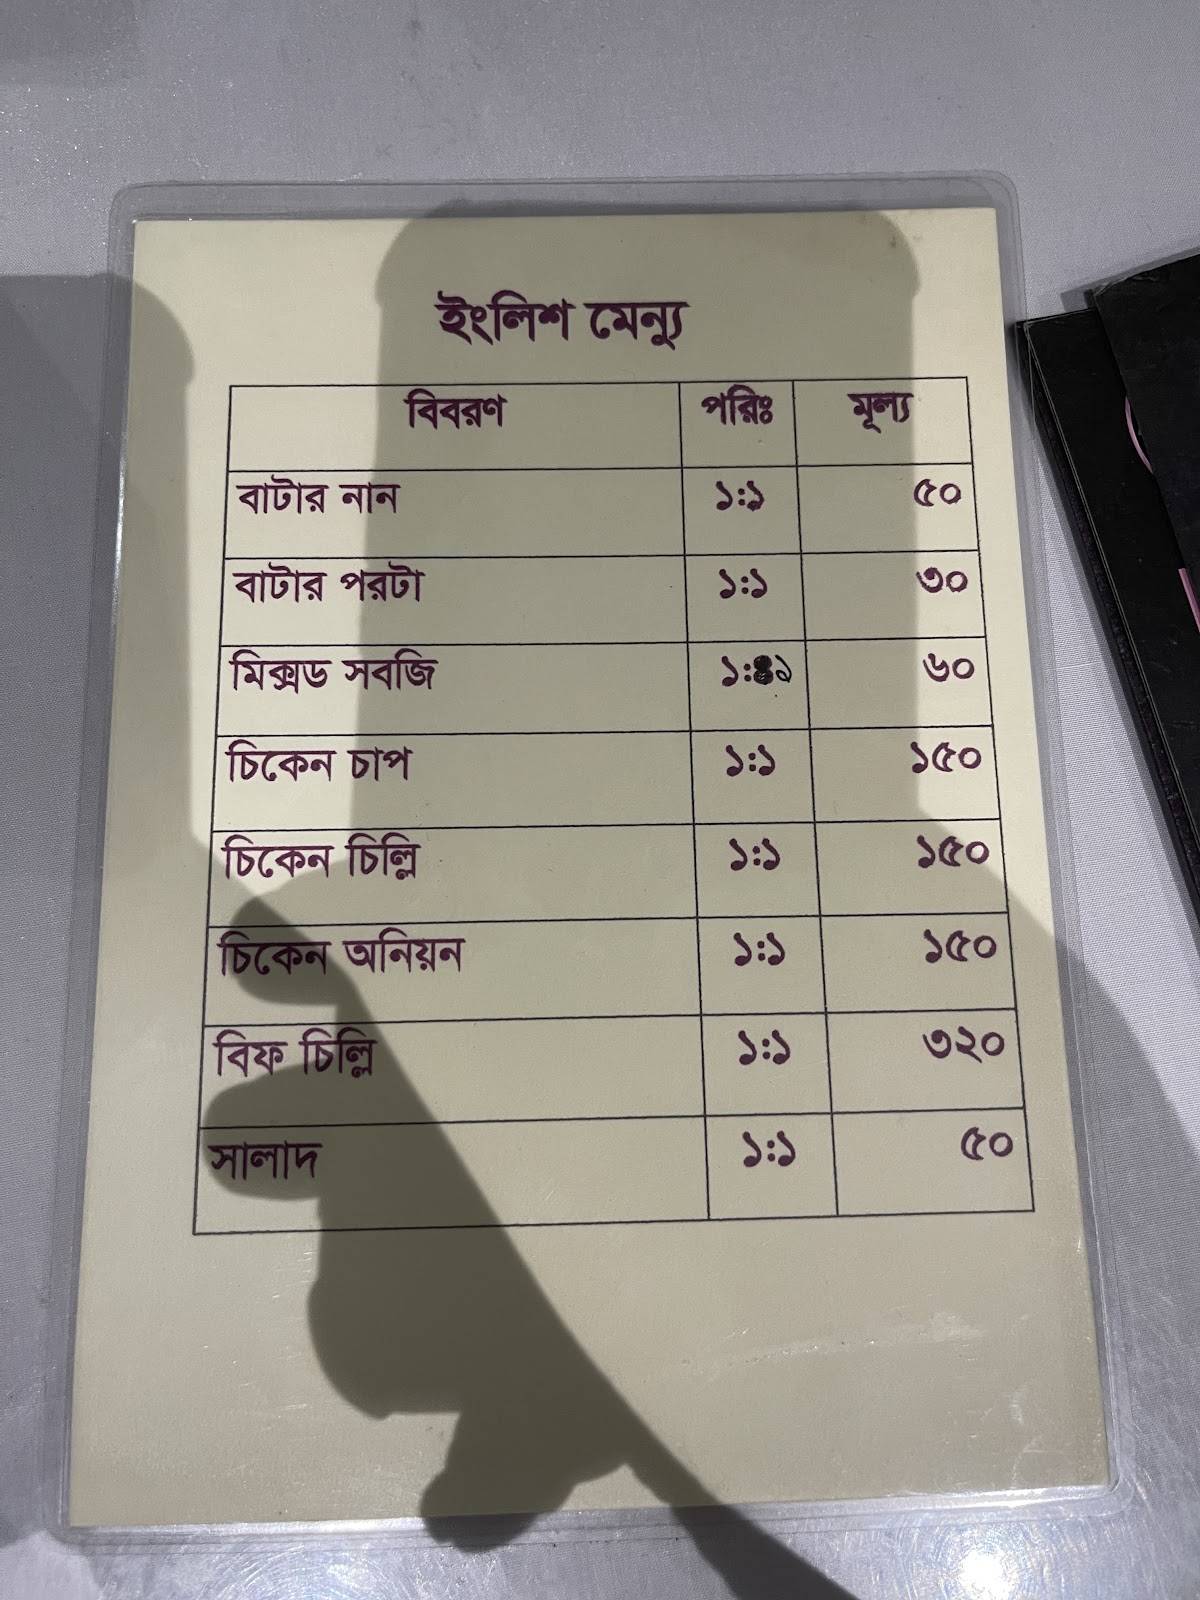 ইংলিশ মেন্যু
বিবরণ পরিঃ মূল্য
বাটার নান ১:১ ৫০
বাটার পরটা ১:১ ৩০
মিক্সড সবজি ১:১ ৬০
চিকেন চাপ ১:১ ১৫০
চিকেন চিল্লি ১:১ ১৫০
চিকেন অনিয়ন ১:১ ১৫০
বিফ চিল্লি ১:১ ৩২০
সালাদ ১:১ ৫০